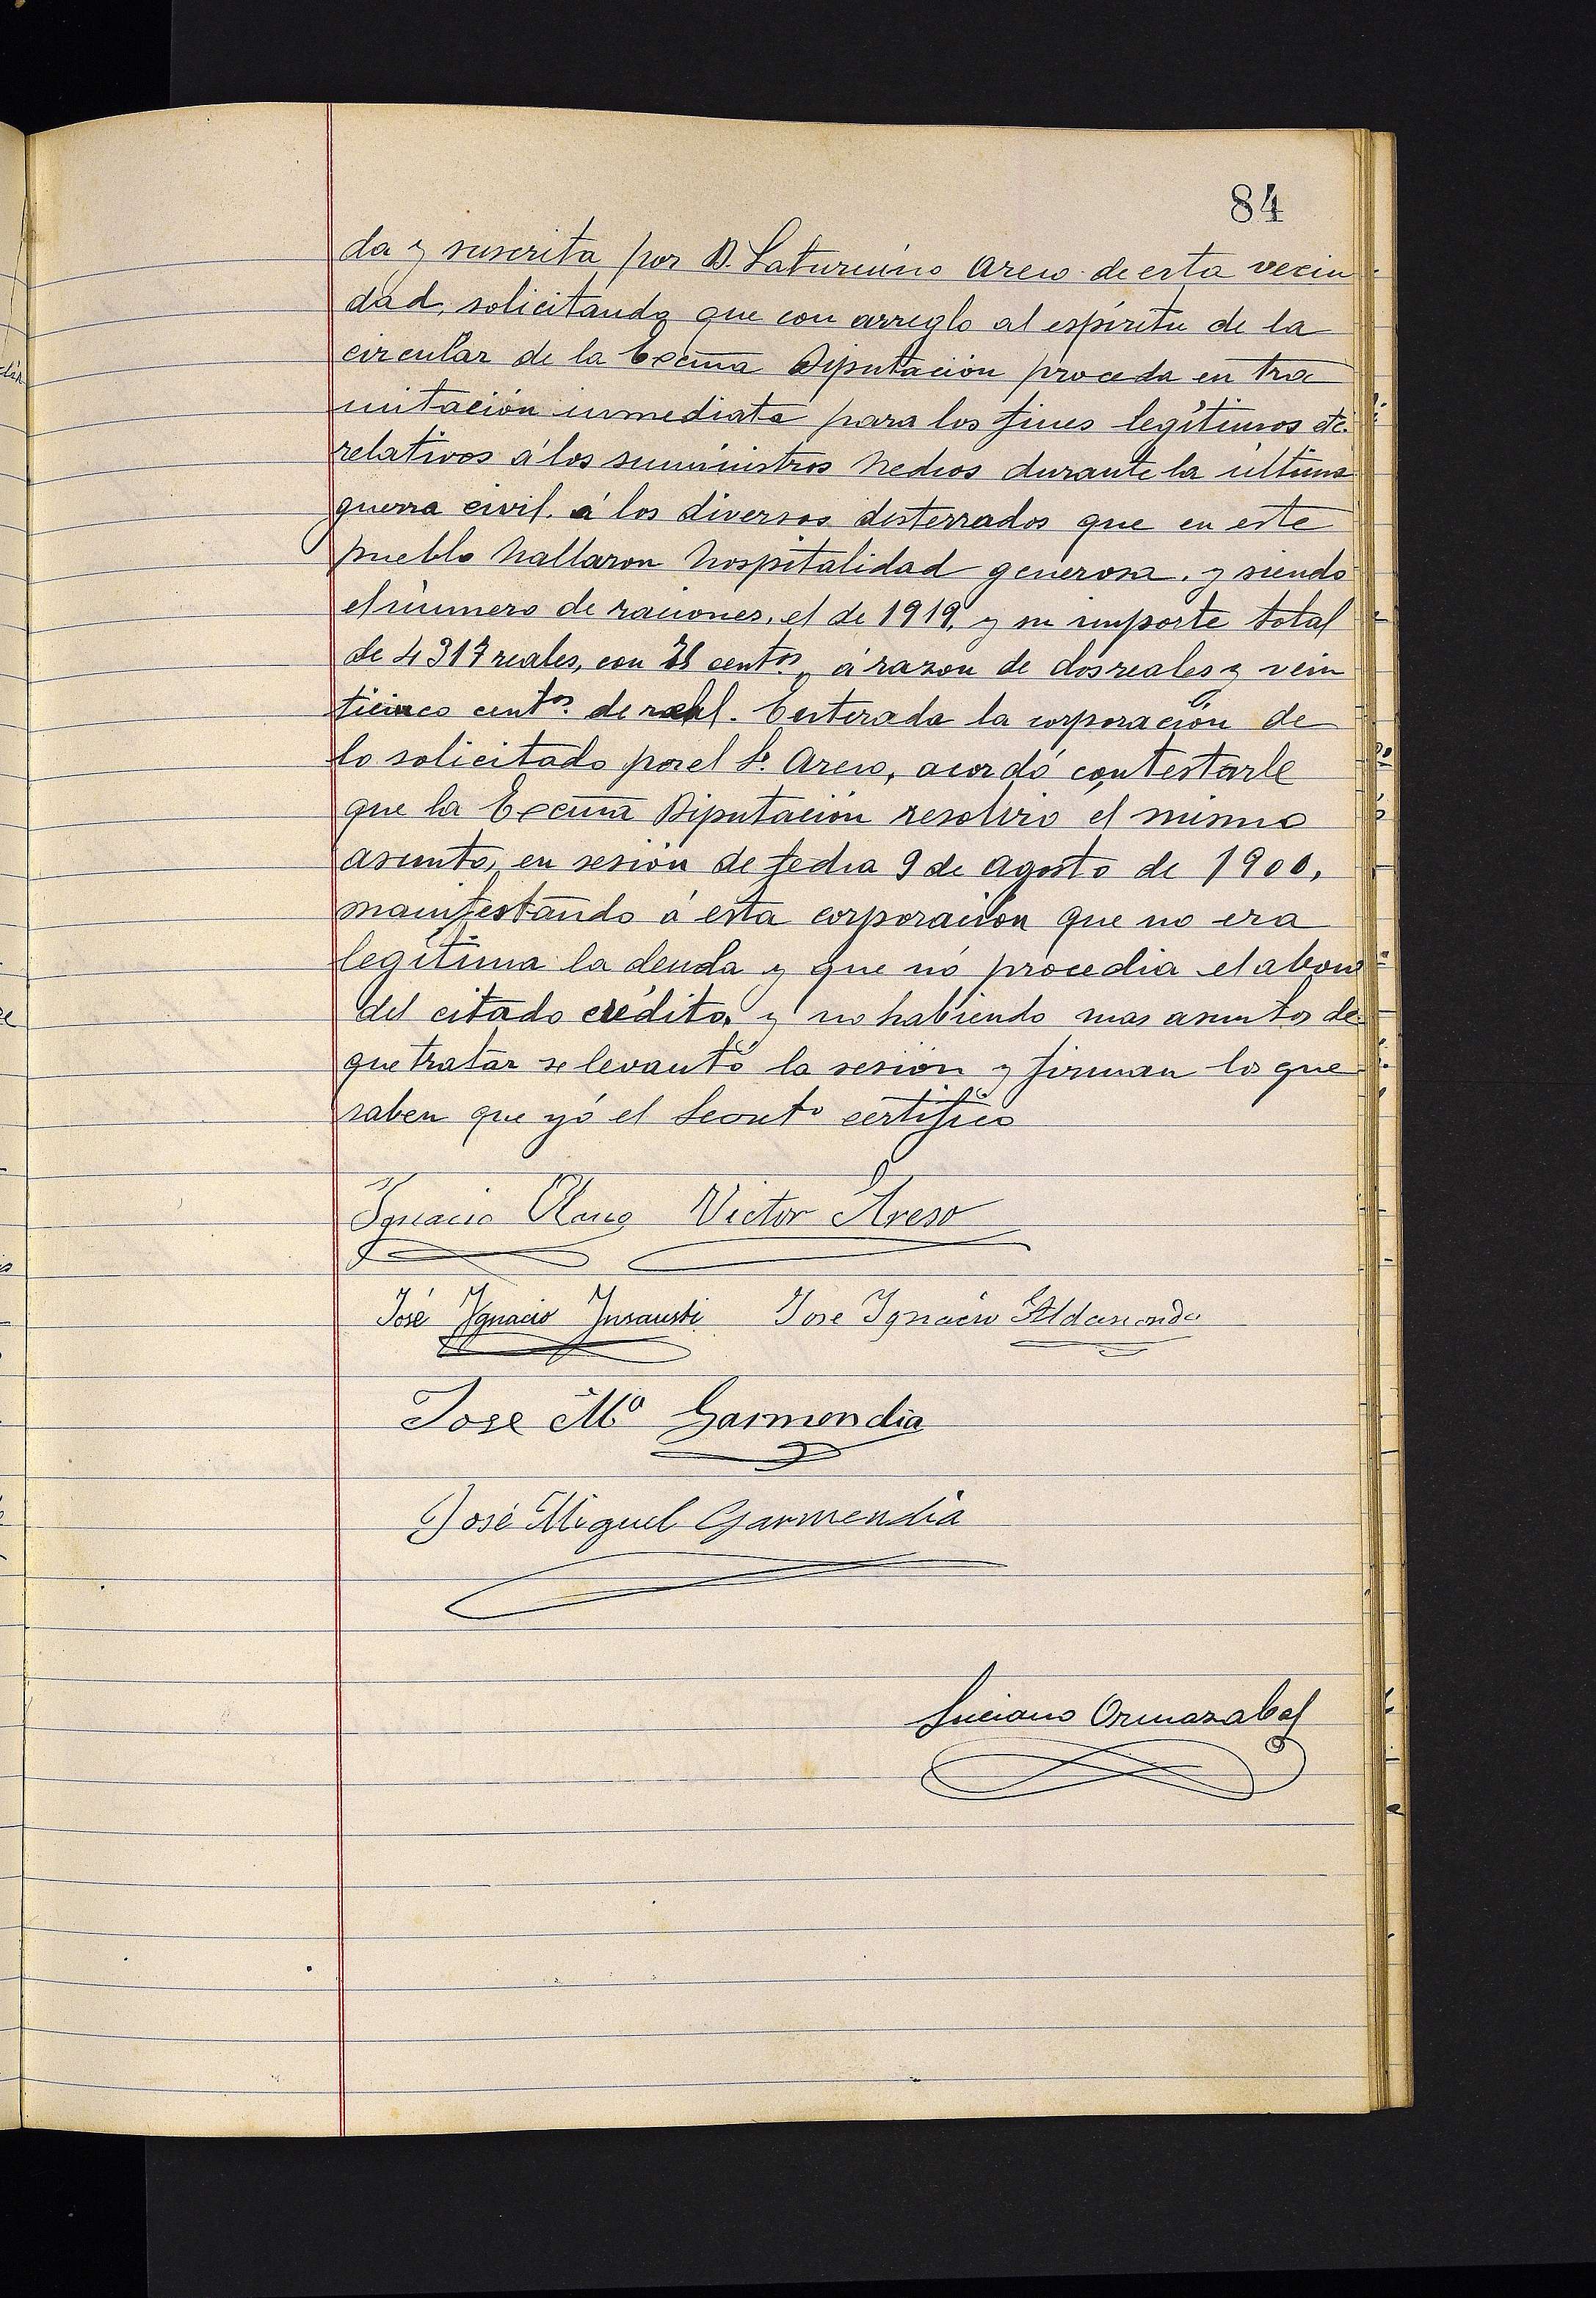 84
da y suscrita por D. Saturnino Areso de esta vecin
dad, solicitando que con arreglo al espíritu de la
circular de la Excma Diputación proceda en tra
mitación inmediata para los fines legítimos etc.
relativos á los suministros hechos durante la última
guerra civil. á los diversos desterrados que en este
pueblo hallaron hospitalidad generosa. y siendo
el número de raciones, el de 1919, y su importe total
de 4317 reales, con centos. á razon de dos reales y vein
ticinco centos. de real. Enterada la corporación de
lo solicitado por el Sr. Areso, acordó contestarle
que la Excma Diputación resolvió el mismo
asunto, en sesión de fecha 9 de Agosto de 1900,
manifestando á esta corporación que no era
legítima la deuda y que nó procedia el abono
del citado crédito, y no habiendo mas asuntos de
que tratar se levantó la sesión y firman los que
saben que yó el Secreto certifico
Ignacio Olano Victor Areso
José Ignacio Insausti Jose Ignacio Aldasoro
Jose Mª Garmendia
José Miguel Garmendia
Luciano Ormazabal